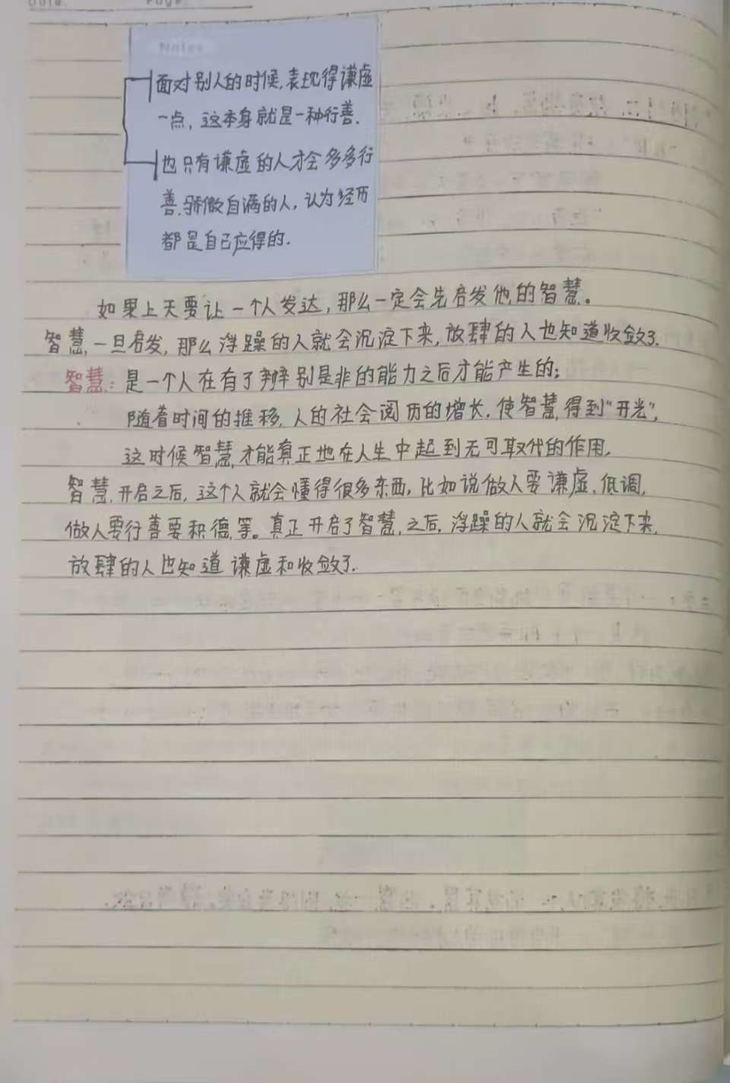 Date. Page.
Notes
面对别人的时候,表现得谦虚
一点，这本身就是一种行善.
也只有谦虚的人才会多多行
善.骄傲自满的人，认为经历
都是自己应得的.
如果上天要让一个人发达，那么一定会先启发他的智慧。
智慧,一旦启发,那么浮躁的人就会沉淀下来,放肆的人也知道收敛了.
智慧：是一个人在有了辨别是非的能力之后才能产生的;
随着时间的推移,人的社会阅历的增长,使智慧,得到"开光",
这时候智慧,才能真正地在人生中起到无可取代的作用,
智慧,开启之后，这个人就会懂得很多东西,比如说做人要谦虚、低调,
做人要行善要积德,等。真正开启了智慧,之后，浮躁的人就会沉淀下来,
放肆的人也知道谦虚和收敛了.